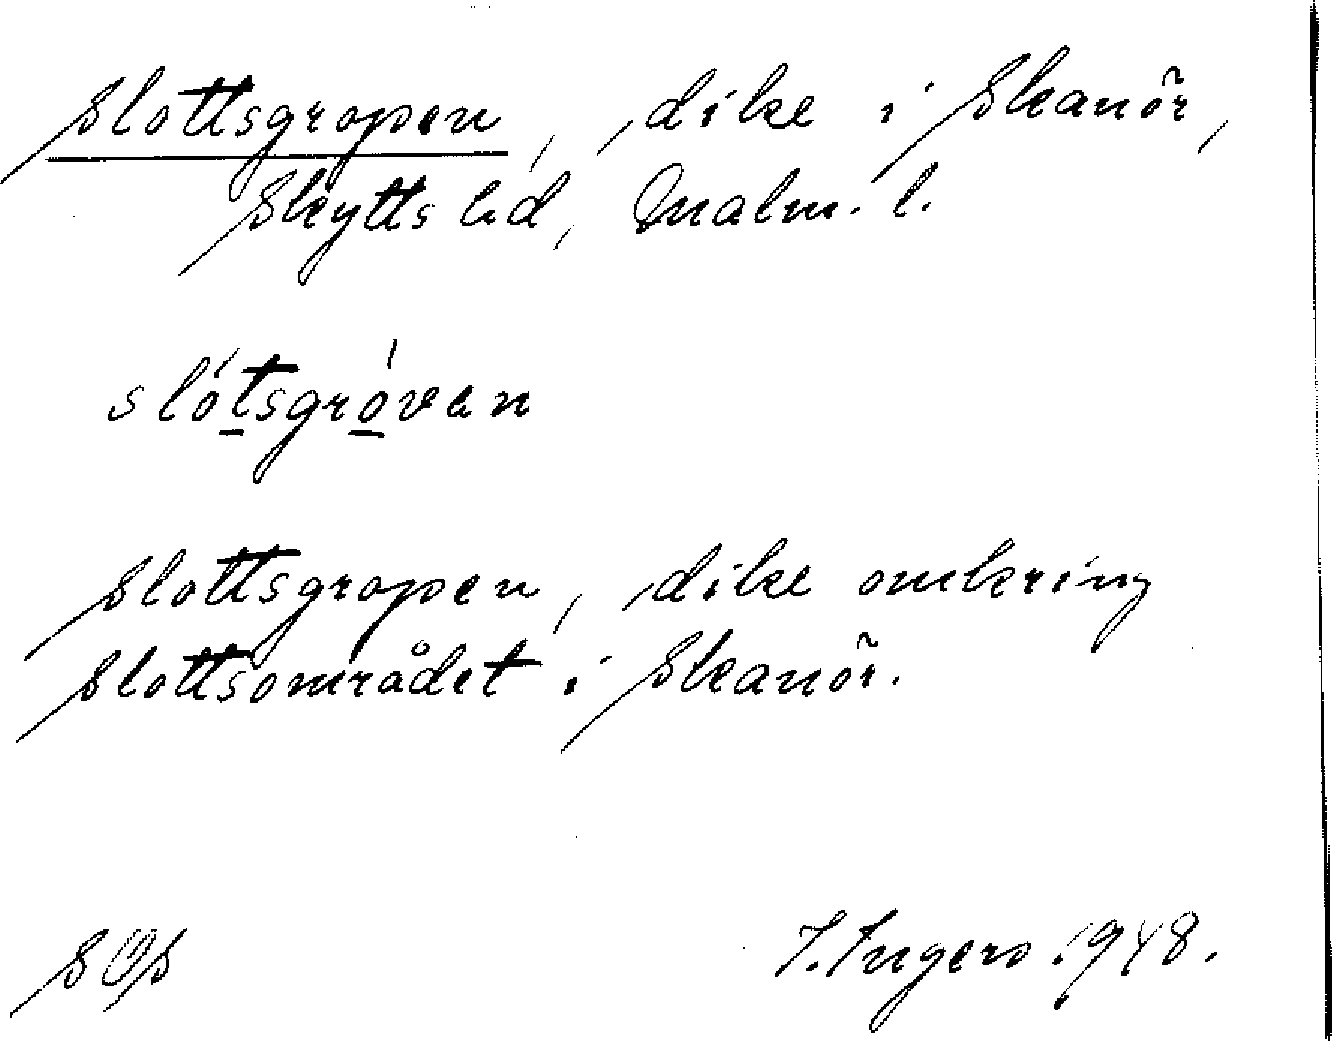 Slottsgropen, dike i Skanör,
Skytts hd, Malm. l.
slótsgróvan
Slottsgropen, dike omkring
Slottsområdet i Skanör.
I. Ingers 1948.